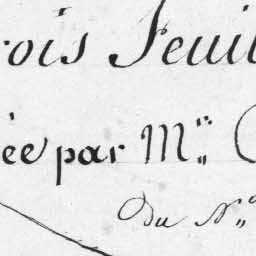 rois Feuil
ée par M.rs
Du N.o